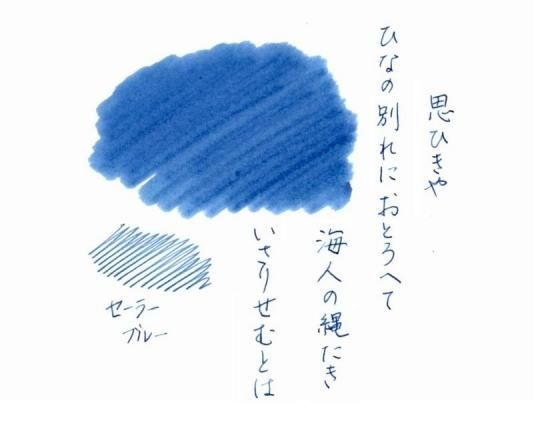 思ひきや
ひなの別れにおとろへて
海人の縄たき
いさりせむとは
セーラー
ブルー